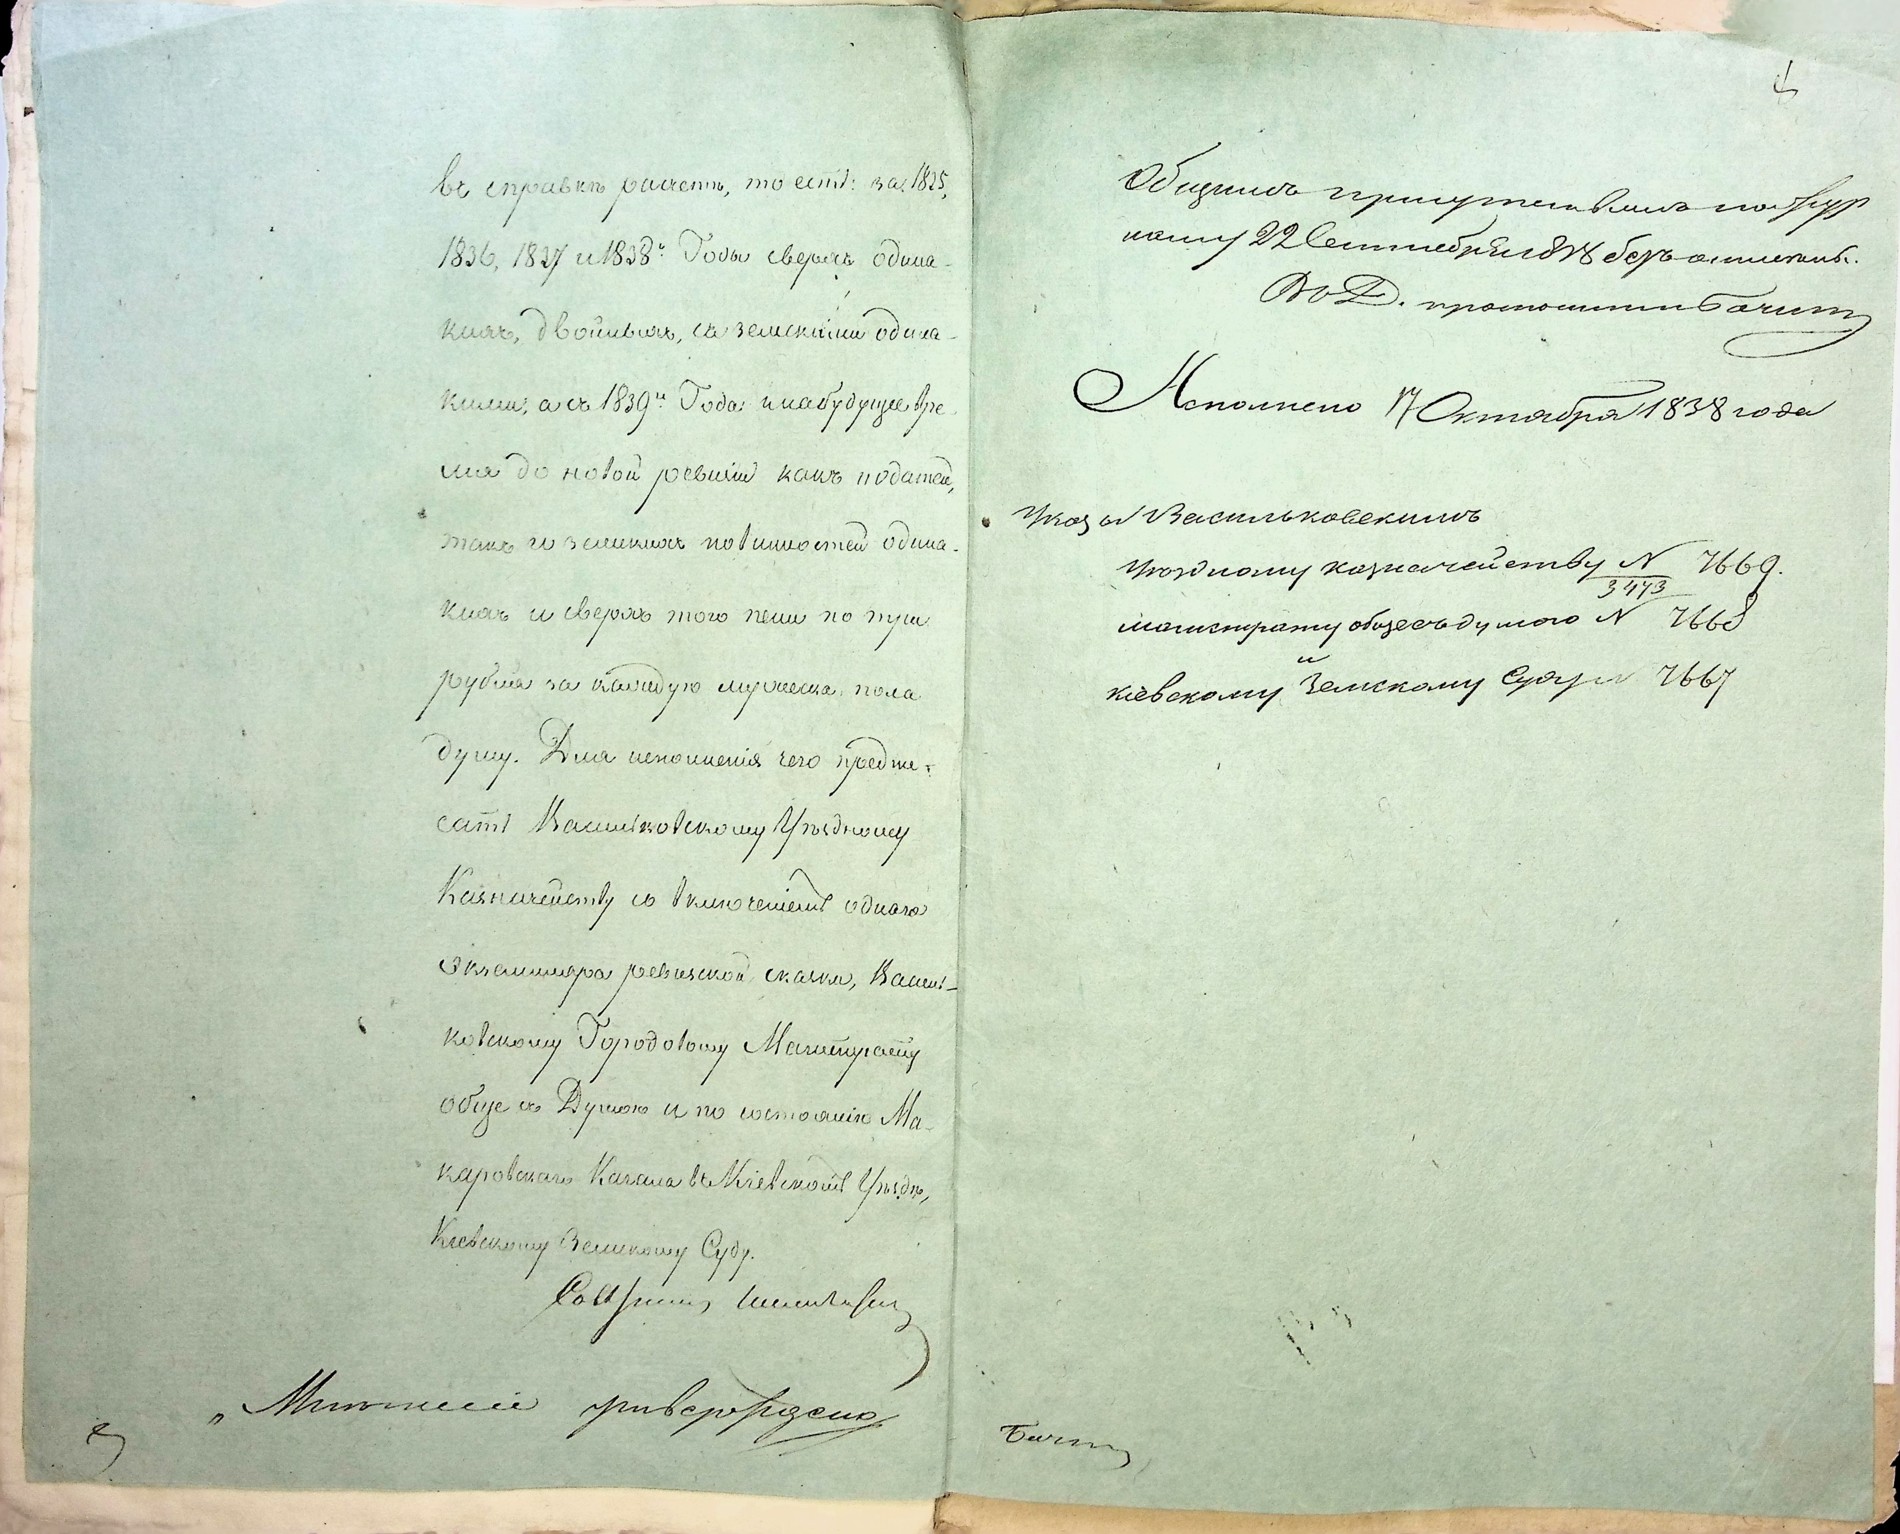 въ справкѣ расчетъ, то есть: за 1835,
1836, 1837 и 1838й Годы сверхъ одина-
кихъ, двойныхъ, съ земскими одина-
кими; а съ 1839го Года и набудущее вре-
мя до новой ревизіи какъ податей,
такъ и земскихъ повинностей одина-
кихъ и сверхъ того пени по три
рубля за каждую мужеска пола
душу. Для исполненія чего предпи-
сать Васильковскому Уѣздному
Казначейству со включеніемъ одного
экземпляра ревизской сказки, Василь-
ковскому Городовому Магистрату
обще съ Думою и по состоянію Ма-
каровскаго Кагала въ Кіевскомъ Уѣздѣ,
Кіевскому Земскому Суду.
Совѣтникъ
„Мнѣніе утверждено
4
Общимъ присутствіемъ по жур
налу 22 Сентября 1838 безъ отмѣны.
Во Д. протоколиста
Исполнено 17 Октября 1838 года
Указы Васильковскимъ
Уѣздному казначейству N 7669.
3473
магистрату обще съ думою N 7668
и
кіевскому Земскому Суду N 7667